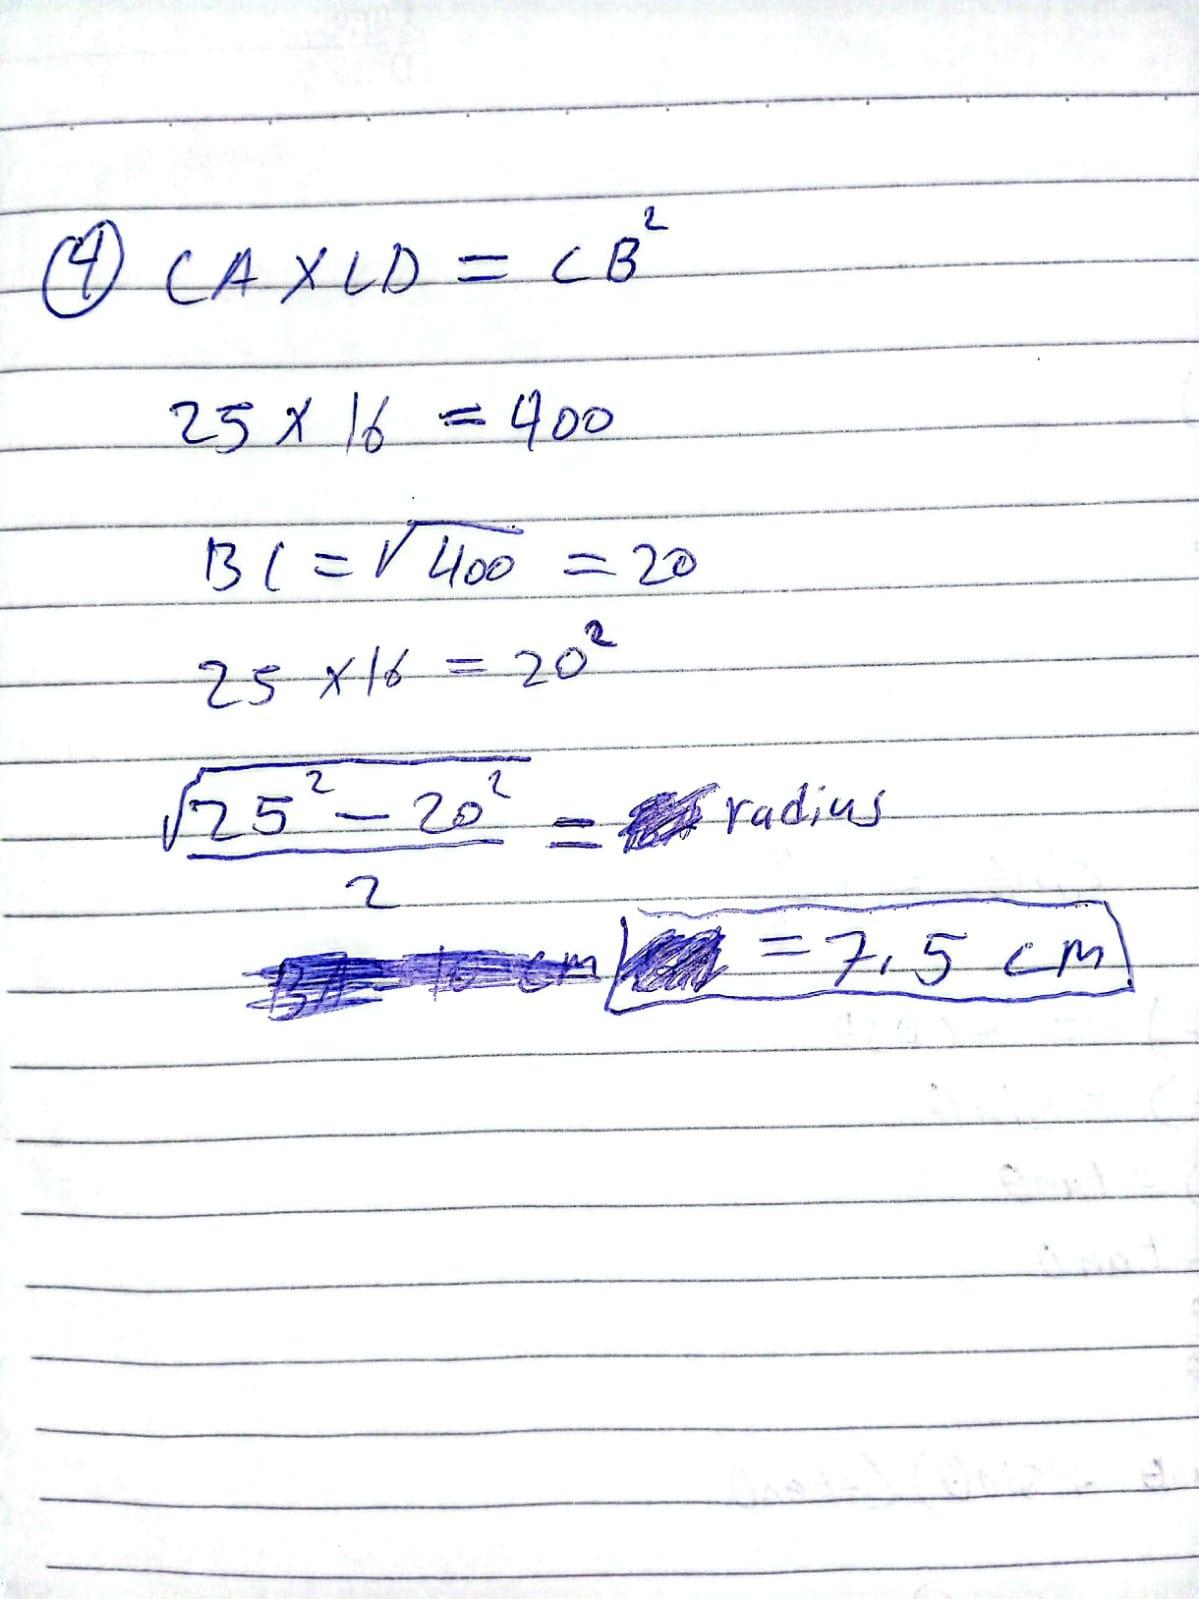 ④ CA X CD = CB²
25 X 16 = 400
BC = √400 = 20
25 x 16 = 20²
√25² - 20² / 2 = radius
cm = 7.5 cm